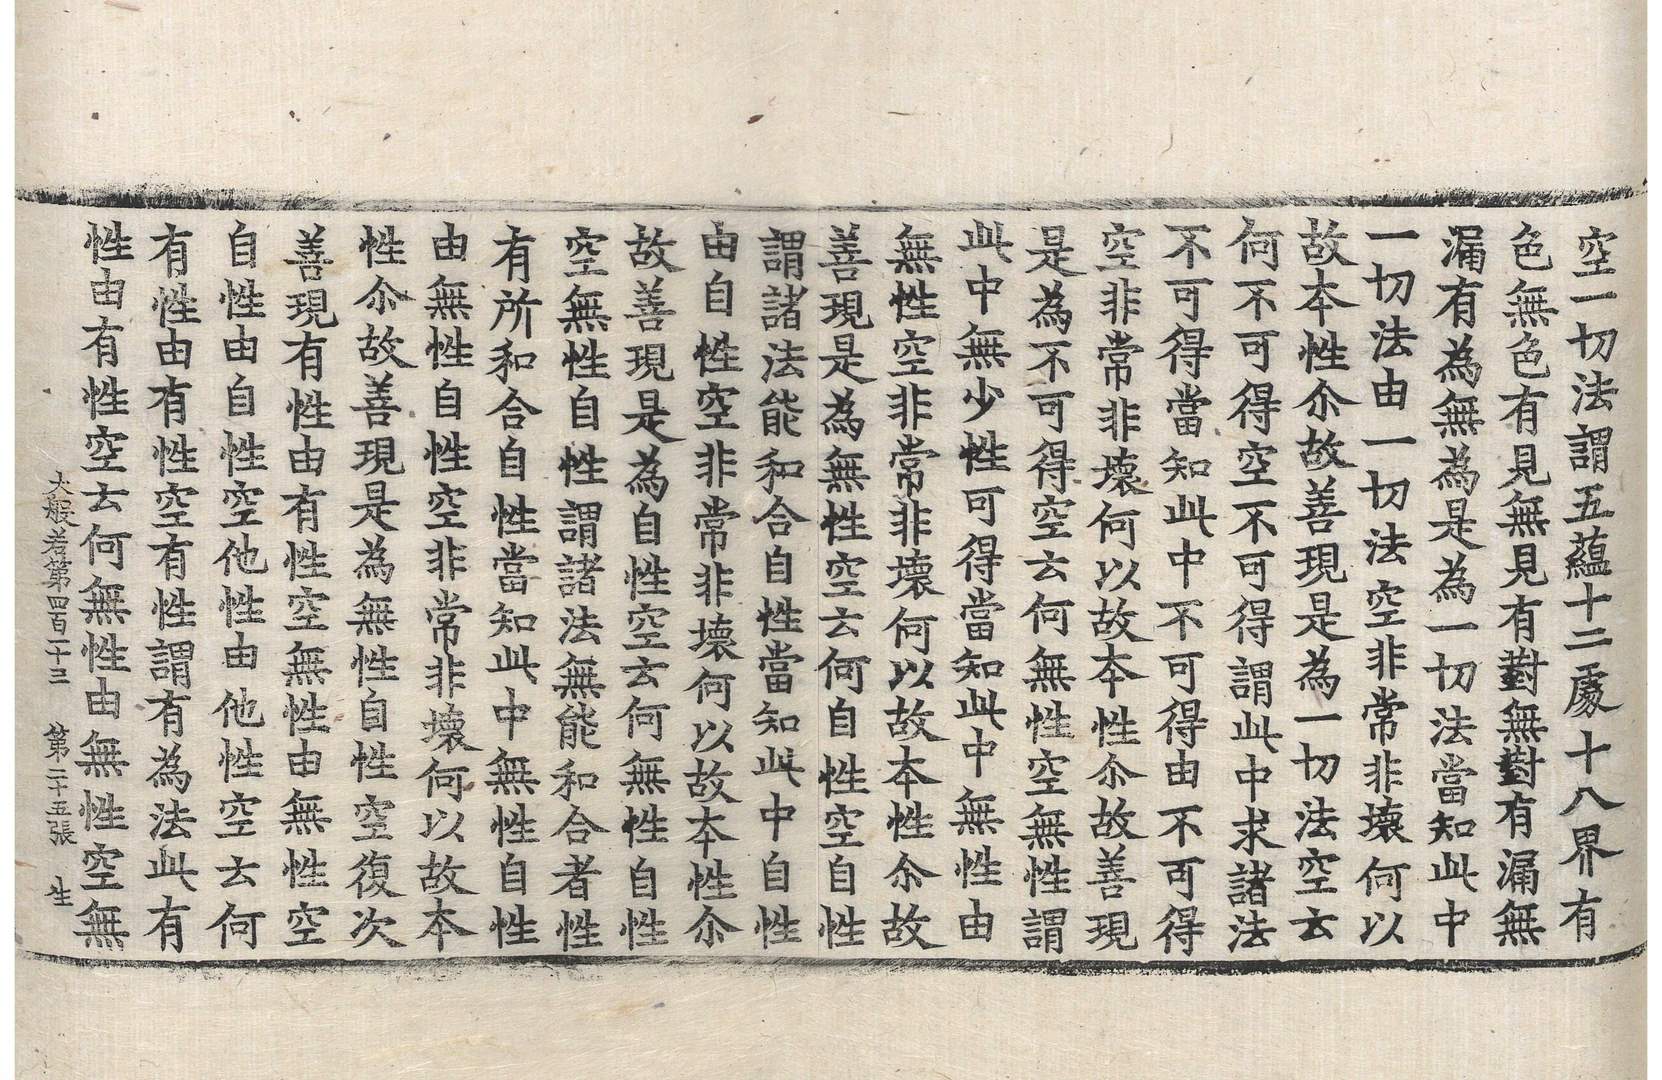 空一切法謂五蘊十二處十八界有
色無色有見無見有對無對有漏無
漏有為無為是為一切法當知此中
一切法由一切法空非常非壞何以
故本性尒故善現是為一切法空云
何不可得空不可得謂此中求諸法
不可得當知此中不可得由不可得
空非常非壞何以故本性尒故善現
是為不可得空云何無性空無性謂
此中無少性可得當知此中無性由
無性空非常非壞何以故本性尒故
善現是為無性空云何自性空自性
謂諸法能和合自性當知此中自性
由自性空非常非壞何以故本性尒
故善現是為自性空云何無性自性
空無性自性謂諸法無能和合者性
有所和合自性當知此中無性自性
由無性自性空非常非壞何以故本
性尒故善現是為無性自性空復次
善現有性由有性空無性由無性空
自性由自性空他性由他性空云何
有性由有性空有性謂有為法此有
性由有性空云何無性由無性空無
大般若第四百一十三 第二十五張 生